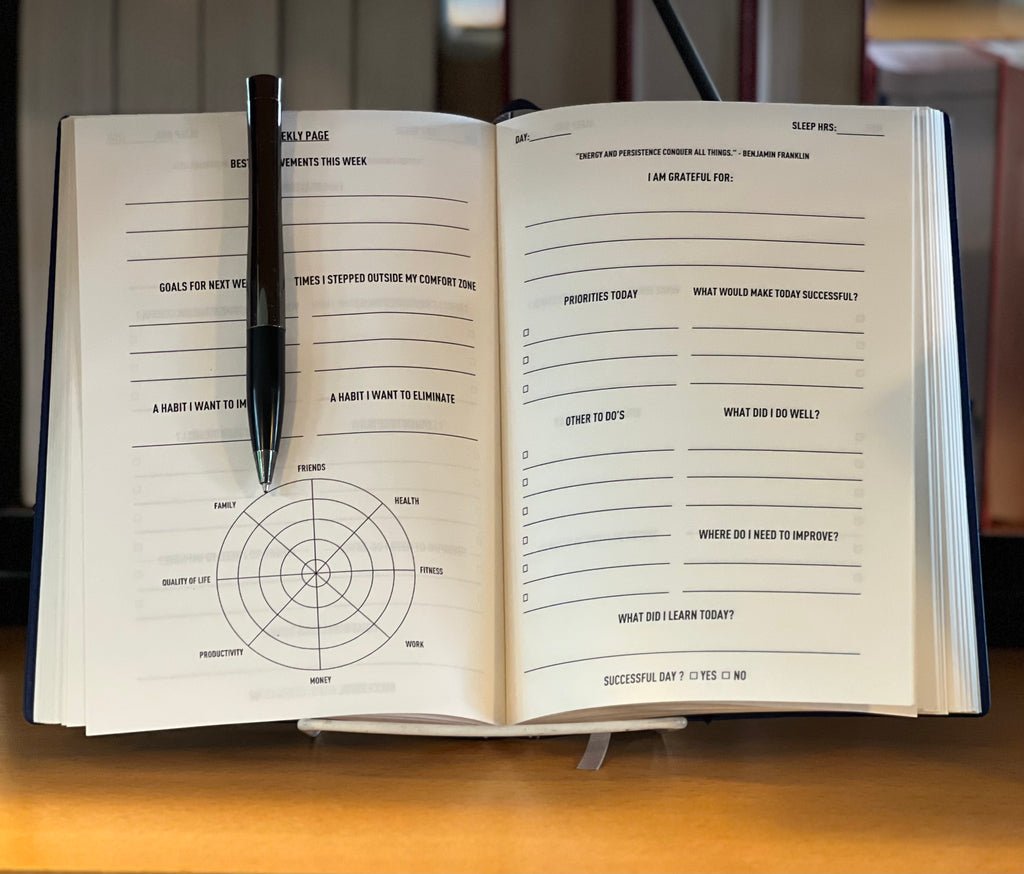 EKLY PAGE
BEST VEMENTS THIS WEEK
GOALS FOR NEXT WE
TIMES I STEPPED OUTSIDE MY COMFORT ZONE
A HABIT I WANT TO IM
A HABIT I WANT TO ELIMINATE
FRIENDS
FAMILY
HEALTH
QUALITY OF LIFE
FITNESS
PRODUCTIVITY
WORK
MONEY
DAY:
SLEEP HRS:
"ENERGY AND PERSISTENCE CONQUER ALL THINGS." - BENJAMIN FRANKLIN
I AM GRATEFUL FOR:
PRIORITIES TODAY
WHAT WOULD MAKE TODAY SUCCESSFUL?
OTHER TO DO'S
WHAT DID I DO WELL?
WHERE DO I NEED TO IMPROVE?
WHAT DID I LEARN TODAY?
SUCCESSFUL DAY ? ☐ YES ☐ NO